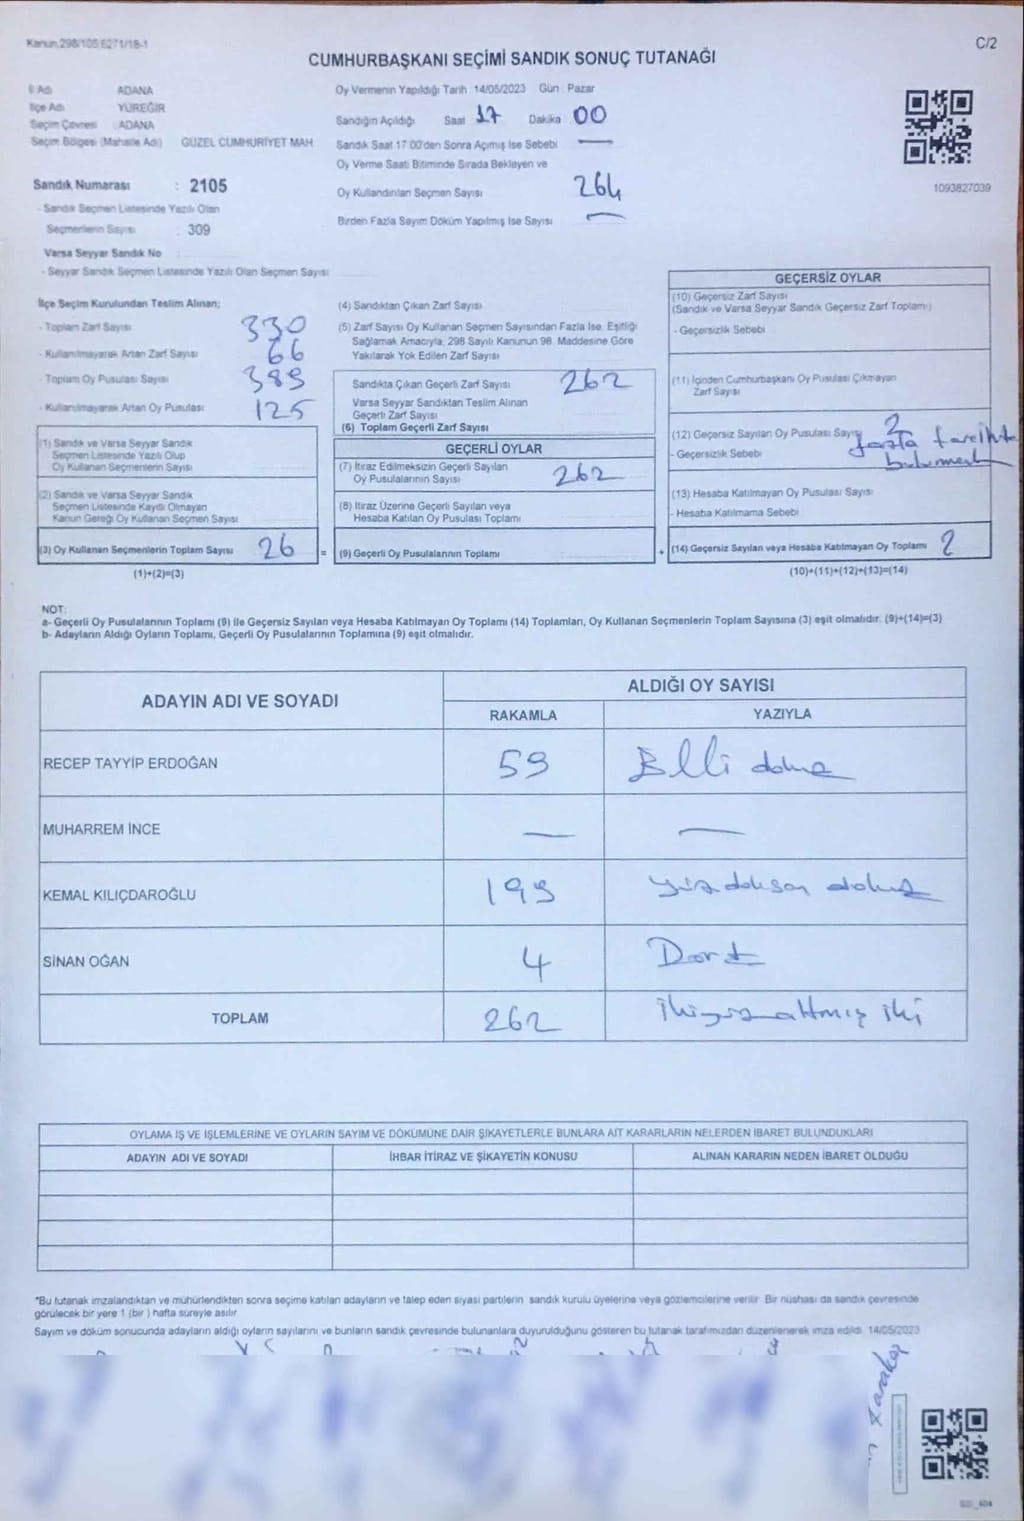 Kanun:298/105,6271/18-1
C/2
CUMHURBAŞKANI SEÇİMİ SANDIK SONUÇ TUTANAĞI
İl Adı ADANA
İlçe Adı YÜREĞİR
Seçim Çevresi : ADANA
Seçim Bölgesi (Mahalle Adı) GÜZEL CUMHURİYET MAH.
Sandık Numarası : 2105
- Sandık Seçmen Listesinde Yazılı Olan
Seçmenlerin Sayısı : 309
Varsa Seyyar Sandık No
- Seyyar Sandık Seçmen Listesinde Yazılı Olan Seçmen Sayısı
Oy Vermenin Yapıldığı Tarih : 14/05/2023 Gün : Pazar
Sandığın Açıldığı Saat 17 Dakika 00
Sandık Saat 17:00'den Sonra Açılmış İse Sebebi —
Oy Verme Saati Bitiminde Sırada Bekleyen ve
Oy Kullandırılan Seçmen Sayısı 264
Birden Fazla Sayım Döküm Yapılmış İse Sayısı —
1093827039
İlçe Seçim Kurulundan Teslim Alınan;
- Toplam Zarf Sayısı 330
- Kullanılmayarak Artan Zarf Sayısı 66
- Toplam Oy Pusulası Sayısı 389
- Kullanılmayarak Artan Oy Pusulası 125
(1) Sandık ve Varsa Seyyar Sandık
Seçmen Listesinde Yazılı Olup
Oy Kullanan Seçmenlerin Sayısı
(2) Sandık ve Varsa Seyyar Sandık
Seçmen Listesinde Kayıtlı Olmayan
Kanun Gereği Oy Kullanan Seçmen Sayısı
(3) Oy Kullanan Seçmenlerin Toplam Sayısı 26 =
(1)+(2)=(3)
(4) Sandıktan Çıkan Zarf Sayısı
(5) Zarf Sayısı Oy Kullanan Seçmen Sayısından Fazla İse, Eşitliği
Sağlamak Amacıyla; 298 Sayılı Kanunun 98. Maddesine Göre
Yakılarak Yok Edilen Zarf Sayısı
Sandıkta Çıkan Geçerli Zarf Sayısı 262
Varsa Seyyar Sandıktan Teslim Alınan
Geçerli Zarf Sayısı
(6) Toplam Geçerli Zarf Sayısı
GEÇERLİ OYLAR
(7) İtiraz Edilmeksizin Geçerli Sayılan
Oy Pusulalarının Sayısı 262
(8) İtiraz Üzerine Geçerli Sayılan veya
Hesaba Katılan Oy Pusulası Toplamı
(9) Geçerli Oy Pusulalarının Toplamı +
GEÇERSİZ OYLAR
(10) Geçersiz Zarf Sayısı
(Sandık ve Varsa Seyyar Sandık Geçersiz Zarf Toplamı)
- Geçersizlik Sebebi
(11) İçinden Cumhurbaşkanı Oy Pusulası Çıkmayan
Zarf Sayısı
(12) Geçersiz Sayılan Oy Pusulası Sayısı 2
- Geçersizlik Sebebi fazla tercihte
bulunmak
(13) Hesaba Katılmayan Oy Pusulası Sayısı
- Hesaba Katılmama Sebebi
(14) Geçersiz Sayılan veya Hesaba Katılmayan Oy Toplamı 2
(10)+(11)+(12)+(13)=(14)
NOT:
a- Geçerli Oy Pusulalarının Toplamı (9) ile Geçersiz Sayılan veya Hesaba Katılmayan Oy Toplamı (14) Toplamları, Oy Kullanan Seçmenlerin Toplam Sayısına (3) eşit olmalıdır. (9)+(14)=(3)
b- Adayların Aldığı Oyların Toplamı, Geçerli Oy Pusulalarının Toplamına (9) eşit olmalıdır.
ADAYIN ADI VE SOYADI
ALDIĞI OY SAYISI
RAKAMLA YAZIYLA
RECEP TAYYİP ERDOĞAN 59 Elli dokuz
MUHARREM İNCE — —
KEMAL KILIÇDAROĞLU 199 yüz doksan dokuz
SİNAN OĞAN 4 Dört
TOPLAM 262 ikiyüz altmış iki
OYLAMA İŞ VE İŞLEMLERİNE VE OYLARIN SAYIM VE DÖKÜMÜNE DAİR ŞİKAYETLERLE BUNLARA AİT KARARLARIN NELERDEN İBARET BULUNDUKLARI
ADAYIN ADI VE SOYADI İHBAR İTİRAZ VE ŞİKAYETİN KONUSU ALINAN KARARIN NEDEN İBARET OLDUĞU
*Bu tutanak imzalandıktan ve mühürlendikten sonra seçime katılan adayların ve talep eden siyasi partilerin sandık kurulu üyelerine veya gözlemcilerine verilir. Bir nüshası da sandık çevresinde
görülecek bir yere 1 (bir ) hafta süreyle asılır.
Sayım ve döküm sonucunda adayların aldığı oyların sayılarını ve bunların sandık çevresinde bulunanlara duyurulduğunu gösteren bu tutanak tarafımızdan düzenlenerek imza edildi. 14/05/2023